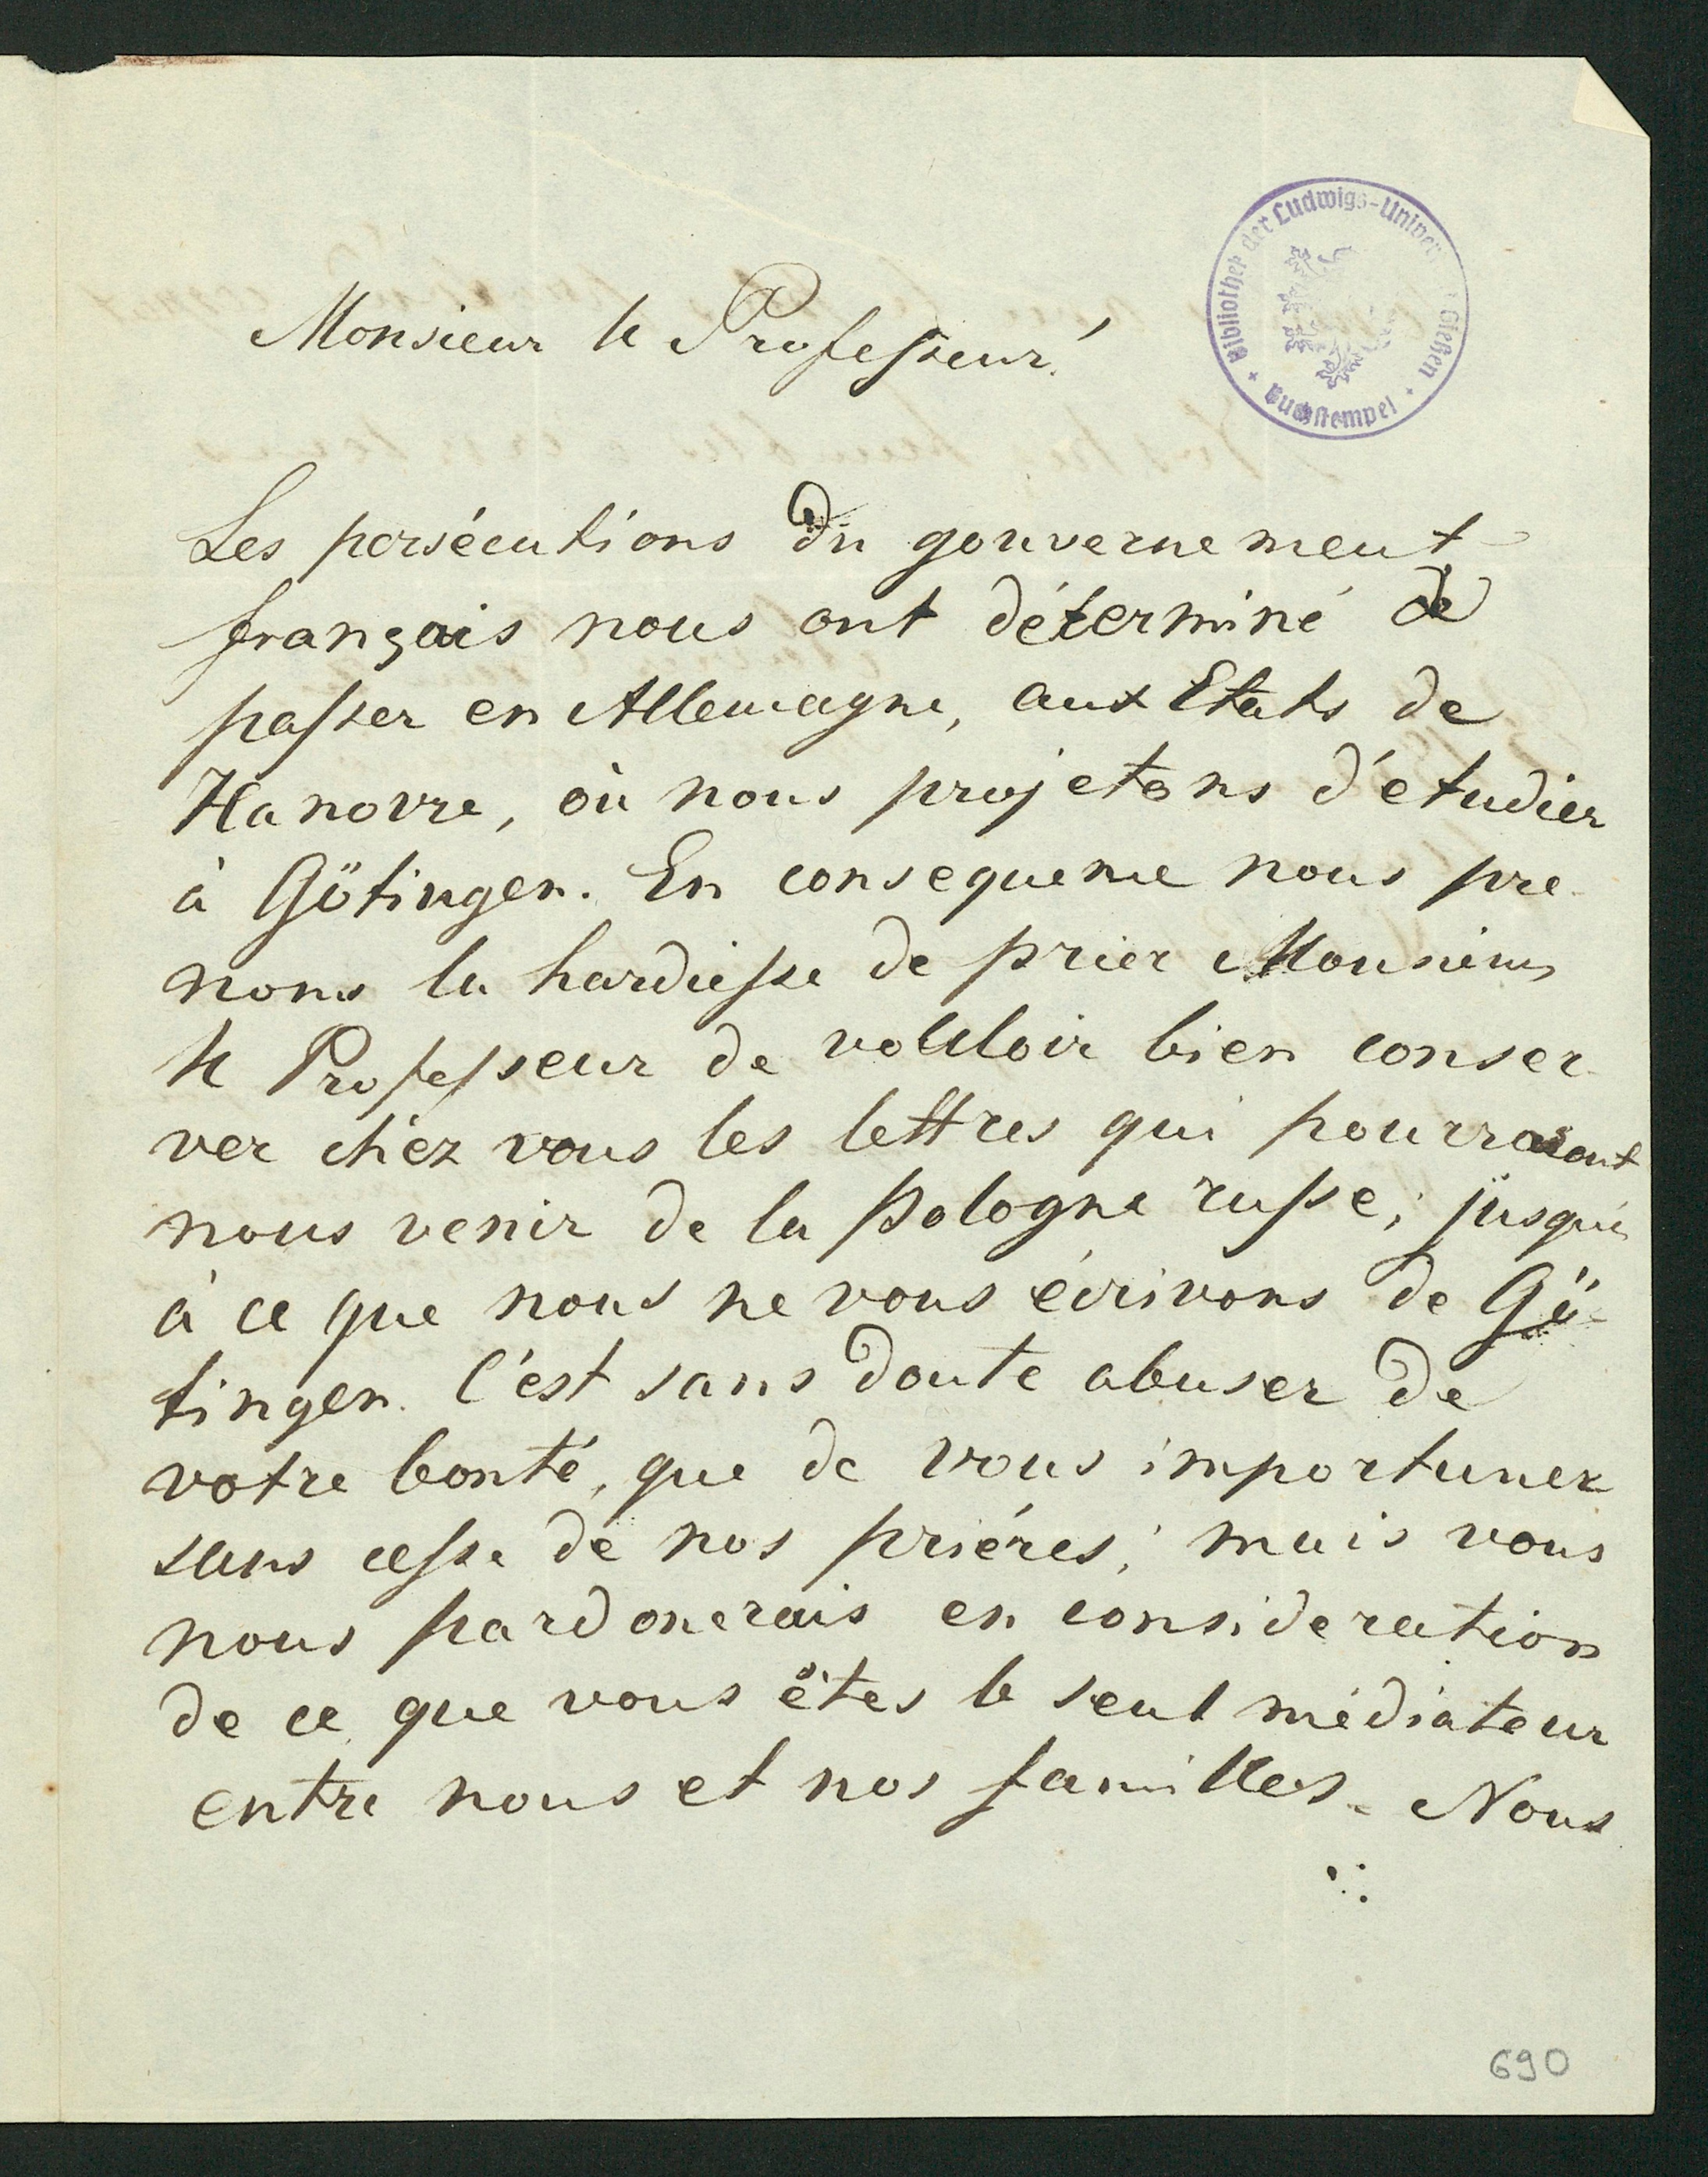 Bibliothek der Ludwigs-Univer Gießen
Buchstempel
Monsieur le Professeur!
Les persécutions du gouvernement
français nous ont déterminé de
passer en Allemagne, aux Etats de
Hanovre, où nous projetons d'étudier
à Götingen. En consequence nous pre-
nons la hardiesse de prier Monsieur
le Professeur de vouloir bien conser-
ver chez vous les lettres qui pourraiont
nous venir de la Pologne russe; jusqu'
à ce que nous ne vous écrivons de Gö-
tingen. C'est sans doute abuser de
votre bonté, que de vous importuner
sans cesse de nos priéres; mais vous
nous pardonerais en consideration
de ce que vous êtes le seul médiateur
entre nous et nos familles. Nous
690